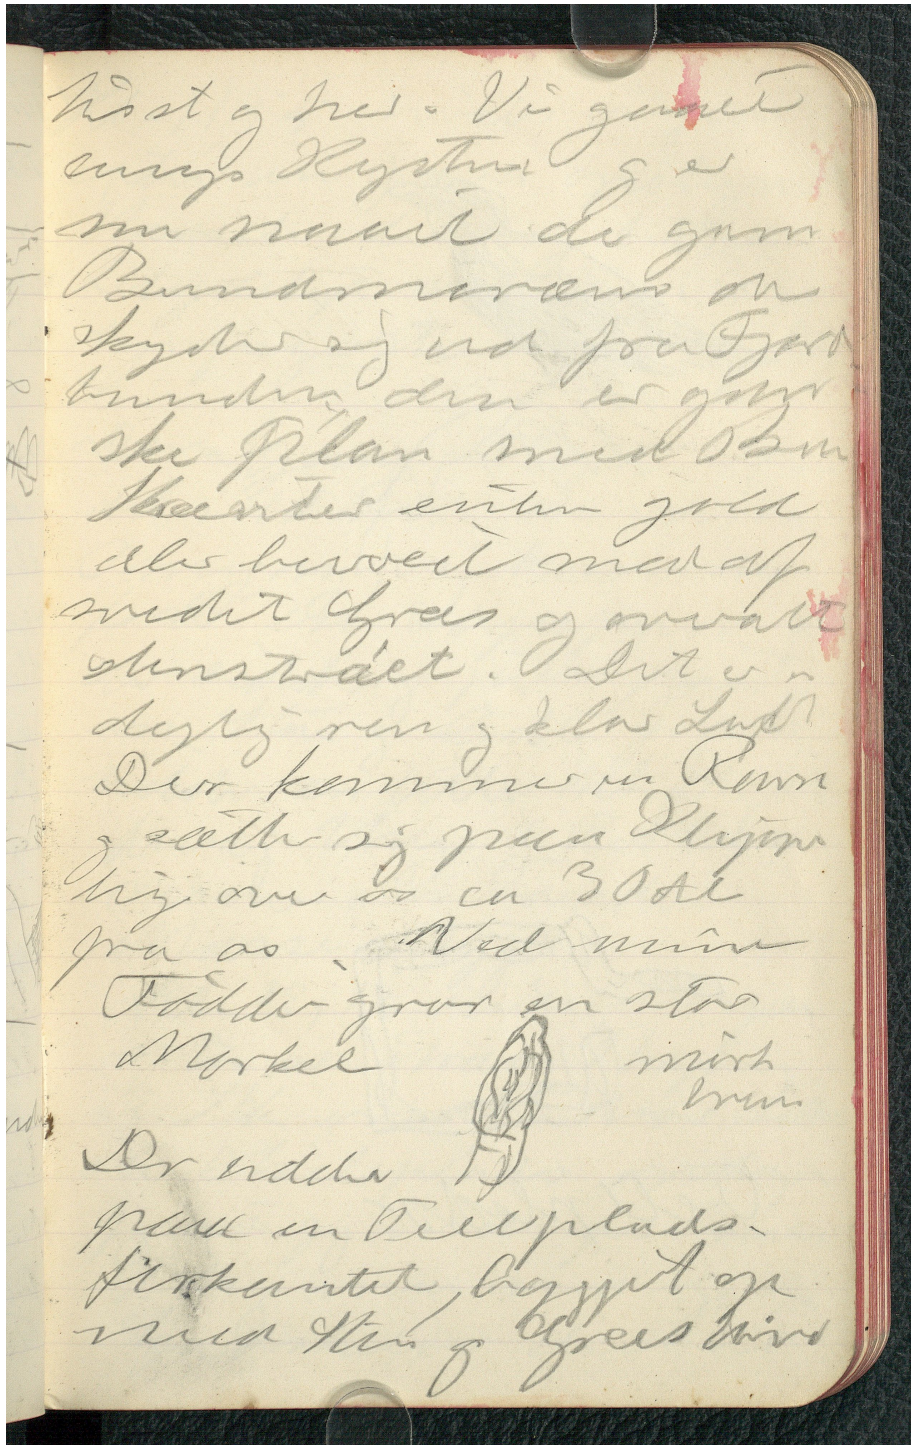 hist og her. Vi gaaet
langs Kysten og er
nu naaet de gam
Bundmoræne der
skyder sig ud fra Fjord
bunden, den er gan
ske plan med
enten gold
eller bevoxet med af
svedet Græs og overalt
stenstrået. Det er en
dejlig ren og klar Luft
Der kommer en Ravn
og sætter sig paa Klippe
lig over os ca 30 Al
fra os. Ved mine
Födder gror en stor
Morkel mörk
brun
Der sidder
paa en Teltplads
firkantet, bygget op
med Sten og Græs